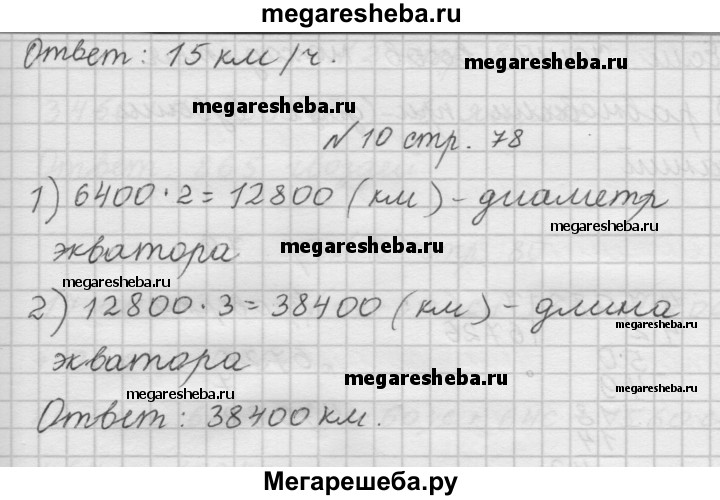 megaresheba.ru
Ответ: 15 км/ч.
megaresheba.ru
megaresheba.ru
№ 10 стр. 78
1) 6400 · 2 = 12800 (км) - диаметр
megaresheba.ru
экватора
megaresheba.ru
megaresheba.ru
2) 12800 · 3 = 38400 (км) - длина
megaresheba.ru
экватора
megaresheba.ru
megaresheba.ru
Ответ: 38400 км.
megaresheba.ru
Мегарешеба.ру